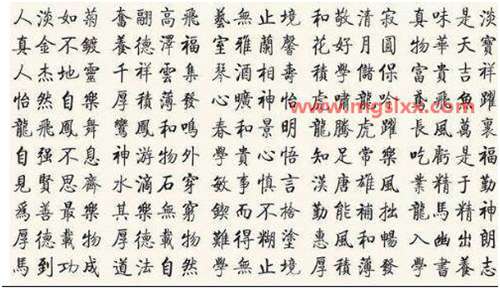 人淡如菊 奮翮高飛 藝無止境 和敬清寂 真味是淡
真金不鍍 養德澤福 室雅蘭馨 花好月圓 物華天寶
人杰地靈 千祥雲集 琴酒相壽 積學儲 富貴吉祥
怡然自樂 厚積薄發 心曠神怡 虎嘯龍吟 魚躍
www.mgslxx.com
龍飛鳳舞 鸞鳳和鳴 春和景明 龍騰虎躍 長風萬里
自强不息 神游物外 學貴心悟 知足常樂 吃虧是福
見賢思齊 水滴石穿 敏事慎言 漢唐雄風 業精于勤
爲善最樂 其樂無窮 鍥而不捨 勤能補拙 龍馬精神
厚德載物 厚德載物 難得糊塗 惠風和暢 入幽出朗
馬到功成 道法自然 學無止境 厚積薄發 學書養志